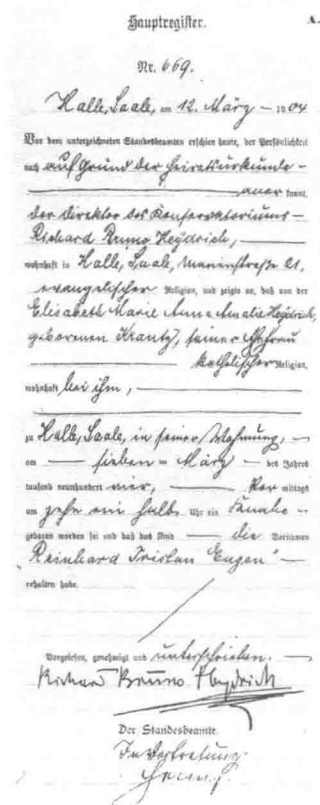 Hauptregister.
A.
Nr. 669.
Halle, Saale, am 12. März 1904
Vor dem unterzeichneten Standesbeamten erschien heute, der Persönlichkeit
nach auf Grund der Heiratsurkunde
aner kannt,
der Direktor des Konservatoriums
Richard Bruno Heydrich,
wohnhaft in Halle, Saale, Marienstraße 21,
evangelischer Religion, und zeigte an, daß von der
Elisabeth Marie Anna Amalie Heydrich,
geborenen Krantz, seiner Ehefrau
katholischer Religion,
wohnhaft bei ihm,
zu Halle, Saale, in seiner Wohnung,
am sieben ten März des Jahres
tausend neunhundert vier, Vor mittags
um zehn ein halb Uhr ein Knabe
geboren worden sei und daß das Kind die Vornamen
Reinhard Tristan Eugen
erhalten habe.
Vorgelesen, genehmigt und unterschrieben.
Richard Bruno Heydrich
Der Standesbeamte.
In Vertretung.